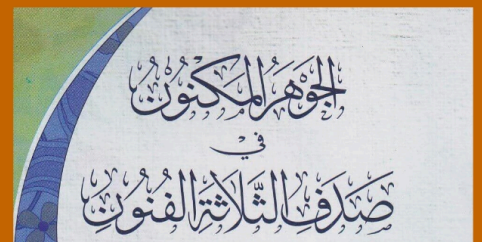 الجَوْهَرُ المَكْنُونُ
في
صَدَفِ الثَّلَاثَةِ الفُنُونِ